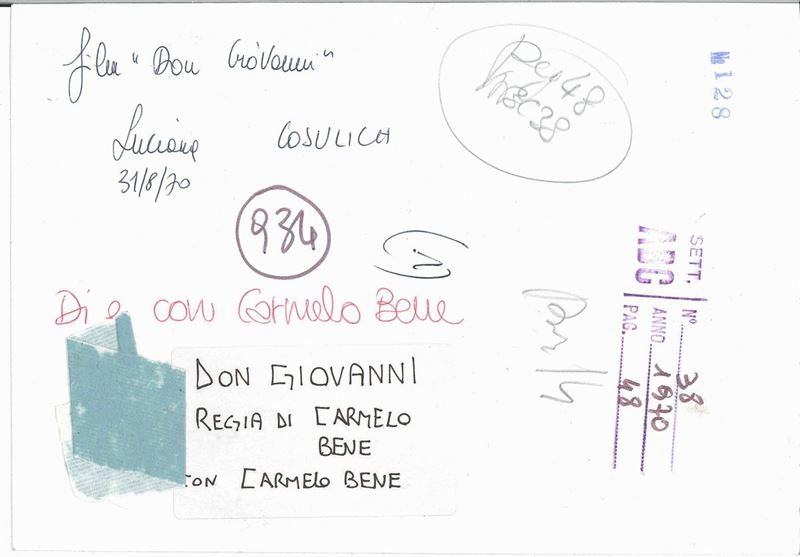 film "Don Giovanni"
Luciana COSULICH
31/8/70
Pag 48
ABC 38
№ 128
934
Di e con Carmelo Bene
DON GIOVANNI
REGIA DI CARMELO
BENE
CON CARMELO BENE
SETT.
ABC
N° 38
ANNO 1970
PAG. 48